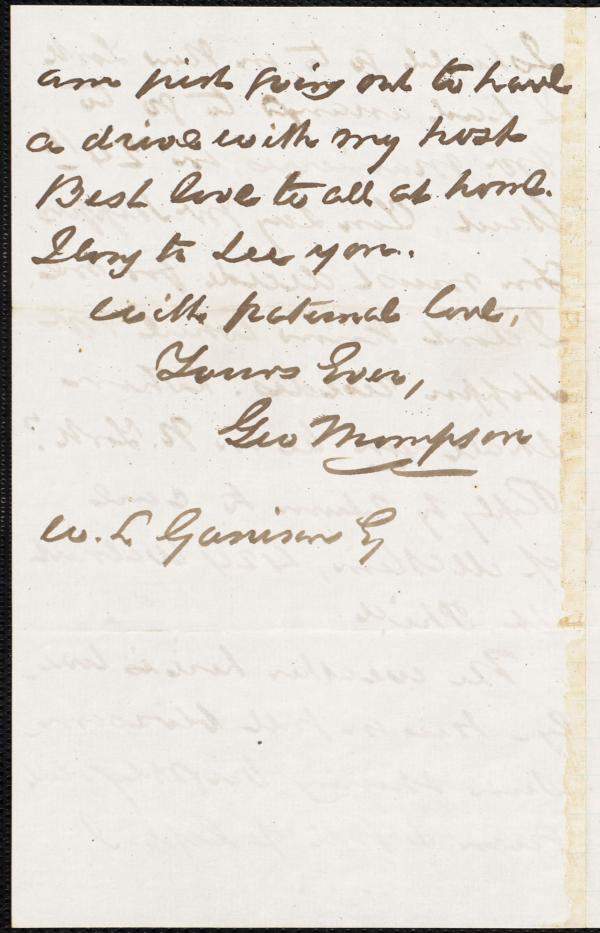 am just going out to have
a drive with my host
Best love to all at home.
I long to see you.
With paternal love,
Yours Ever,
Geo Thompson
W. L Garrison Eq